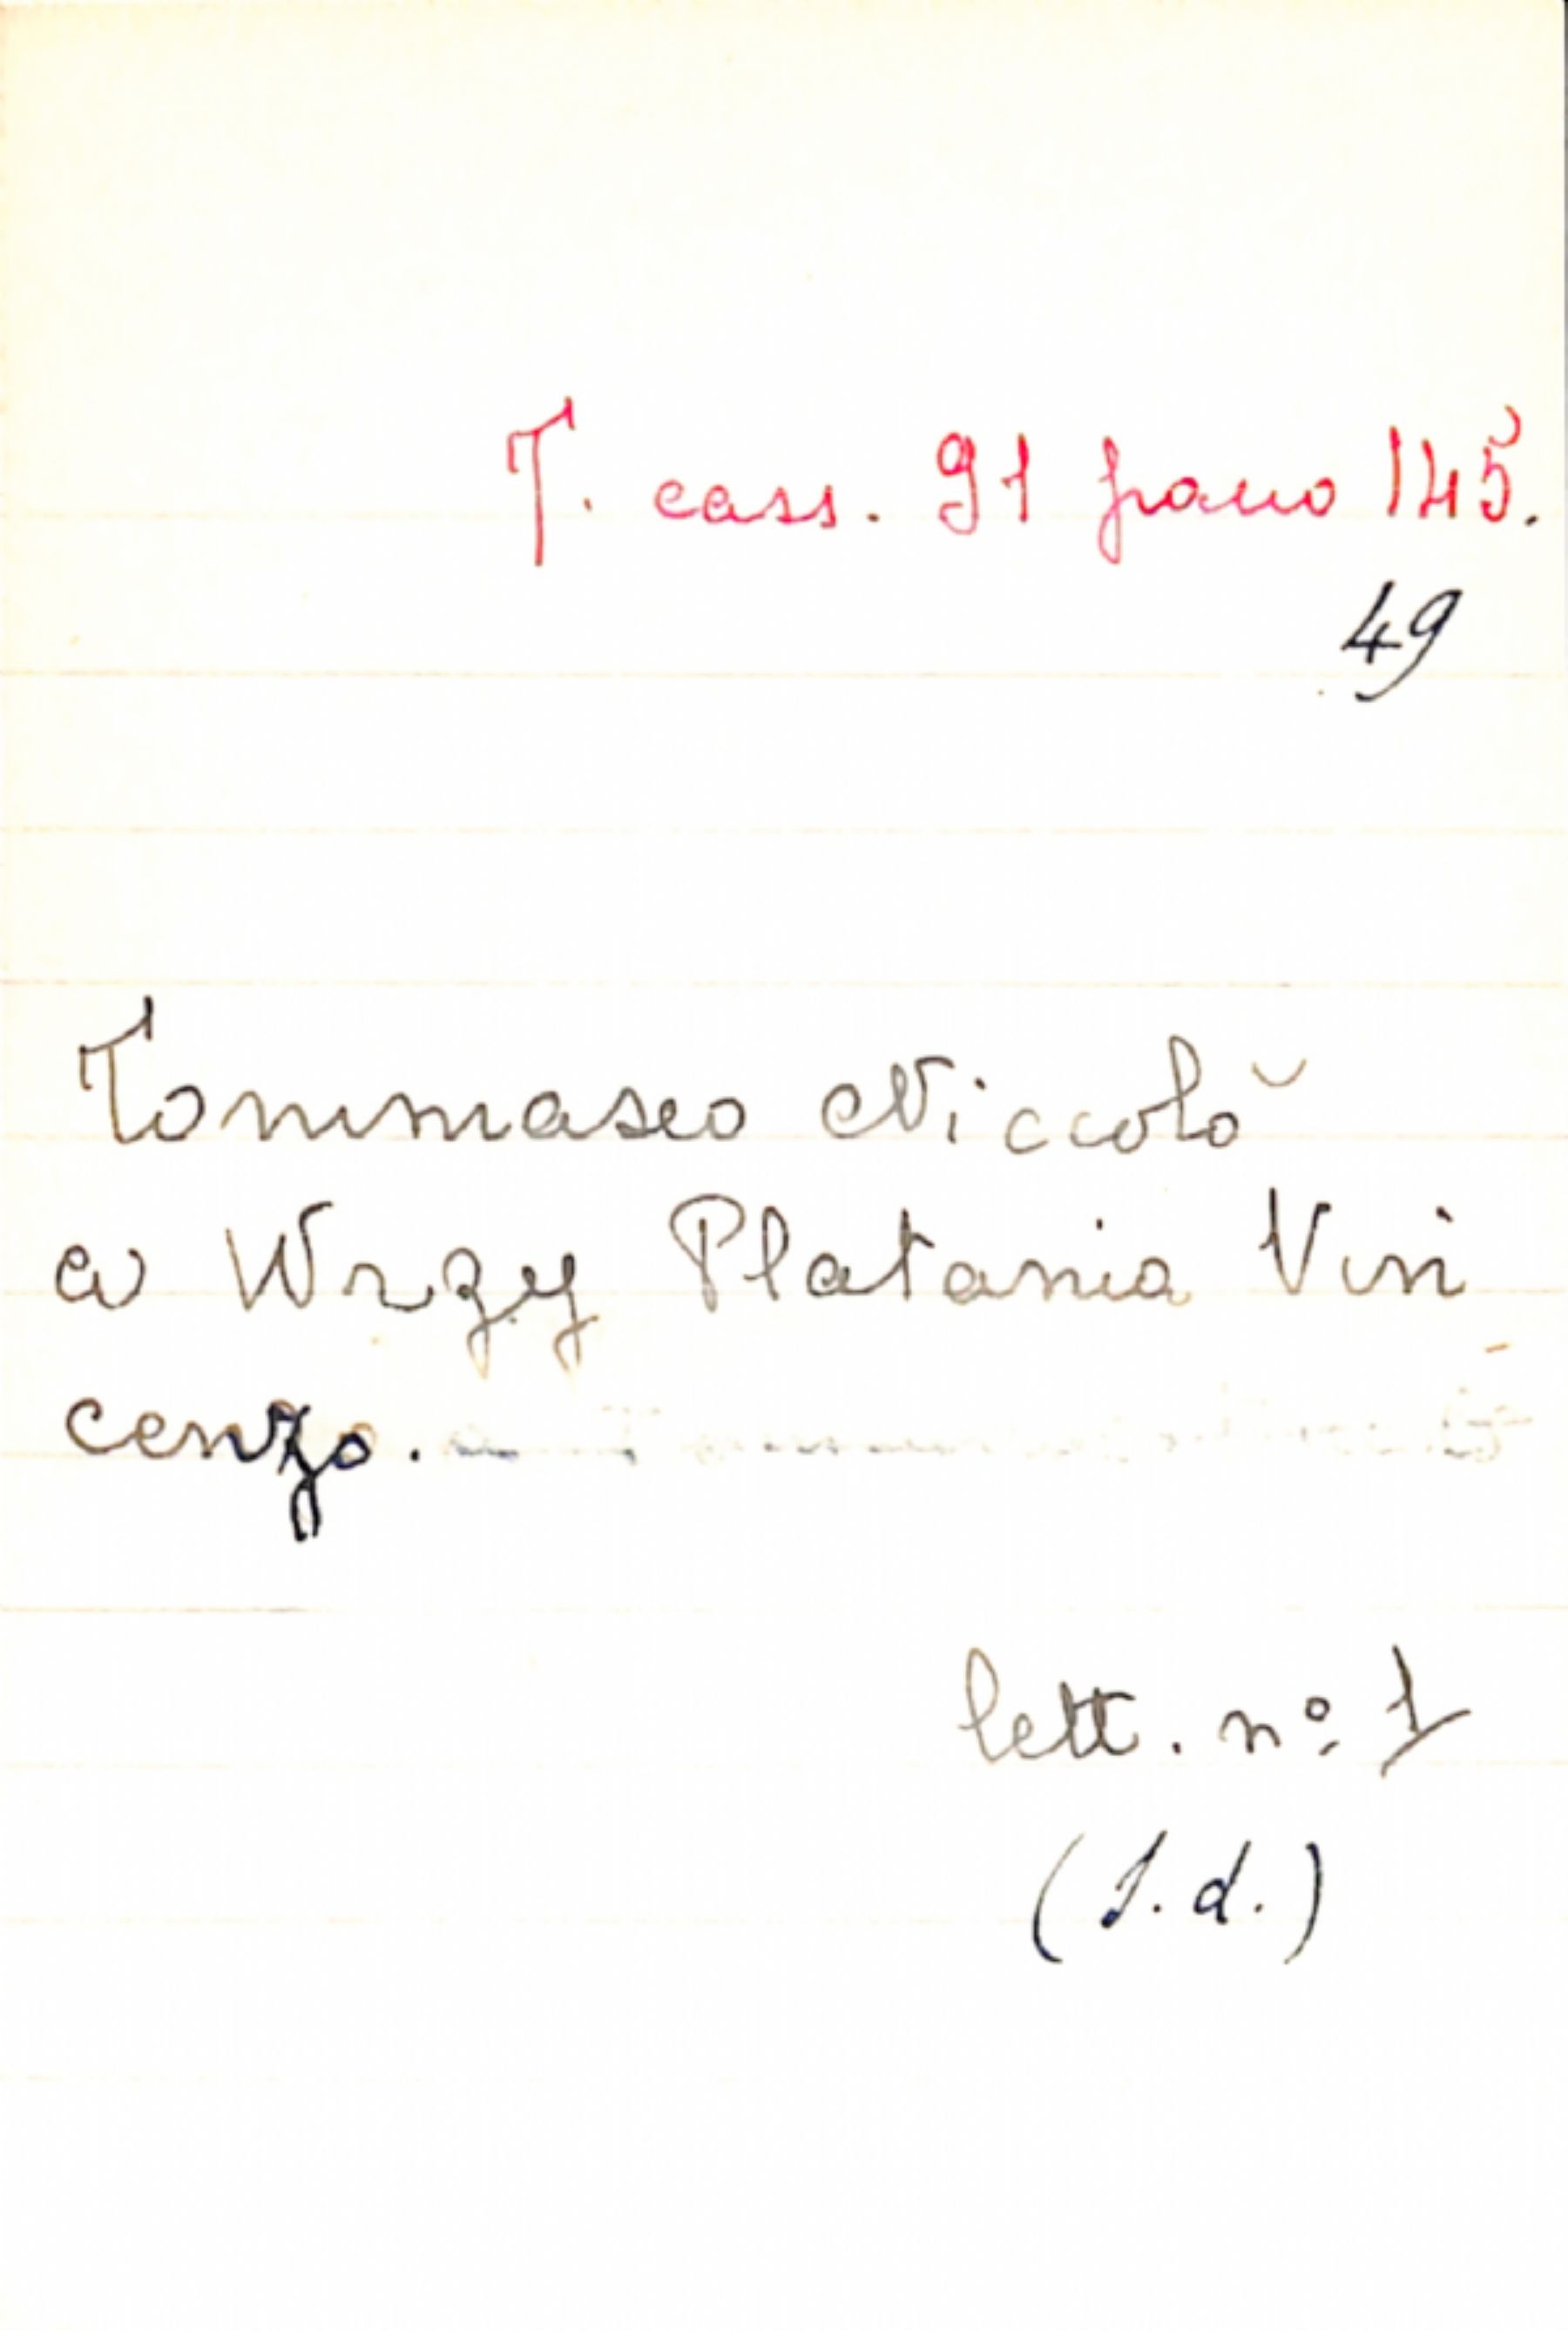 T. cass. 91 frano 145.
49
Tommaseo Niccolò
a Wrzy Platania Vin
cenzo.
lett. nº 1
(S. d.)